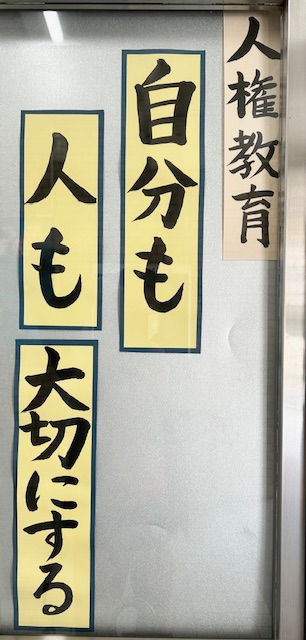 人権教育
自分も
人も
大切にする